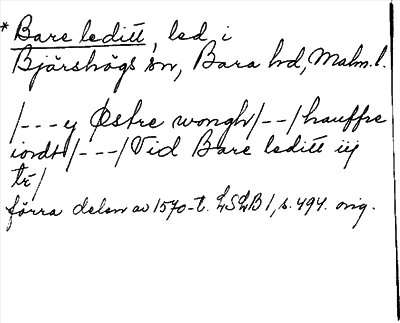 * Bare leditt, led i
Bjärshögs sn, Bara hd, Malm. l.
/---y Østre wongh/--/hauffre
iordt/---/Vid Bare leditt iij
tr/
förra delen av 1570-t. LSLB 1, s. 494. orig.